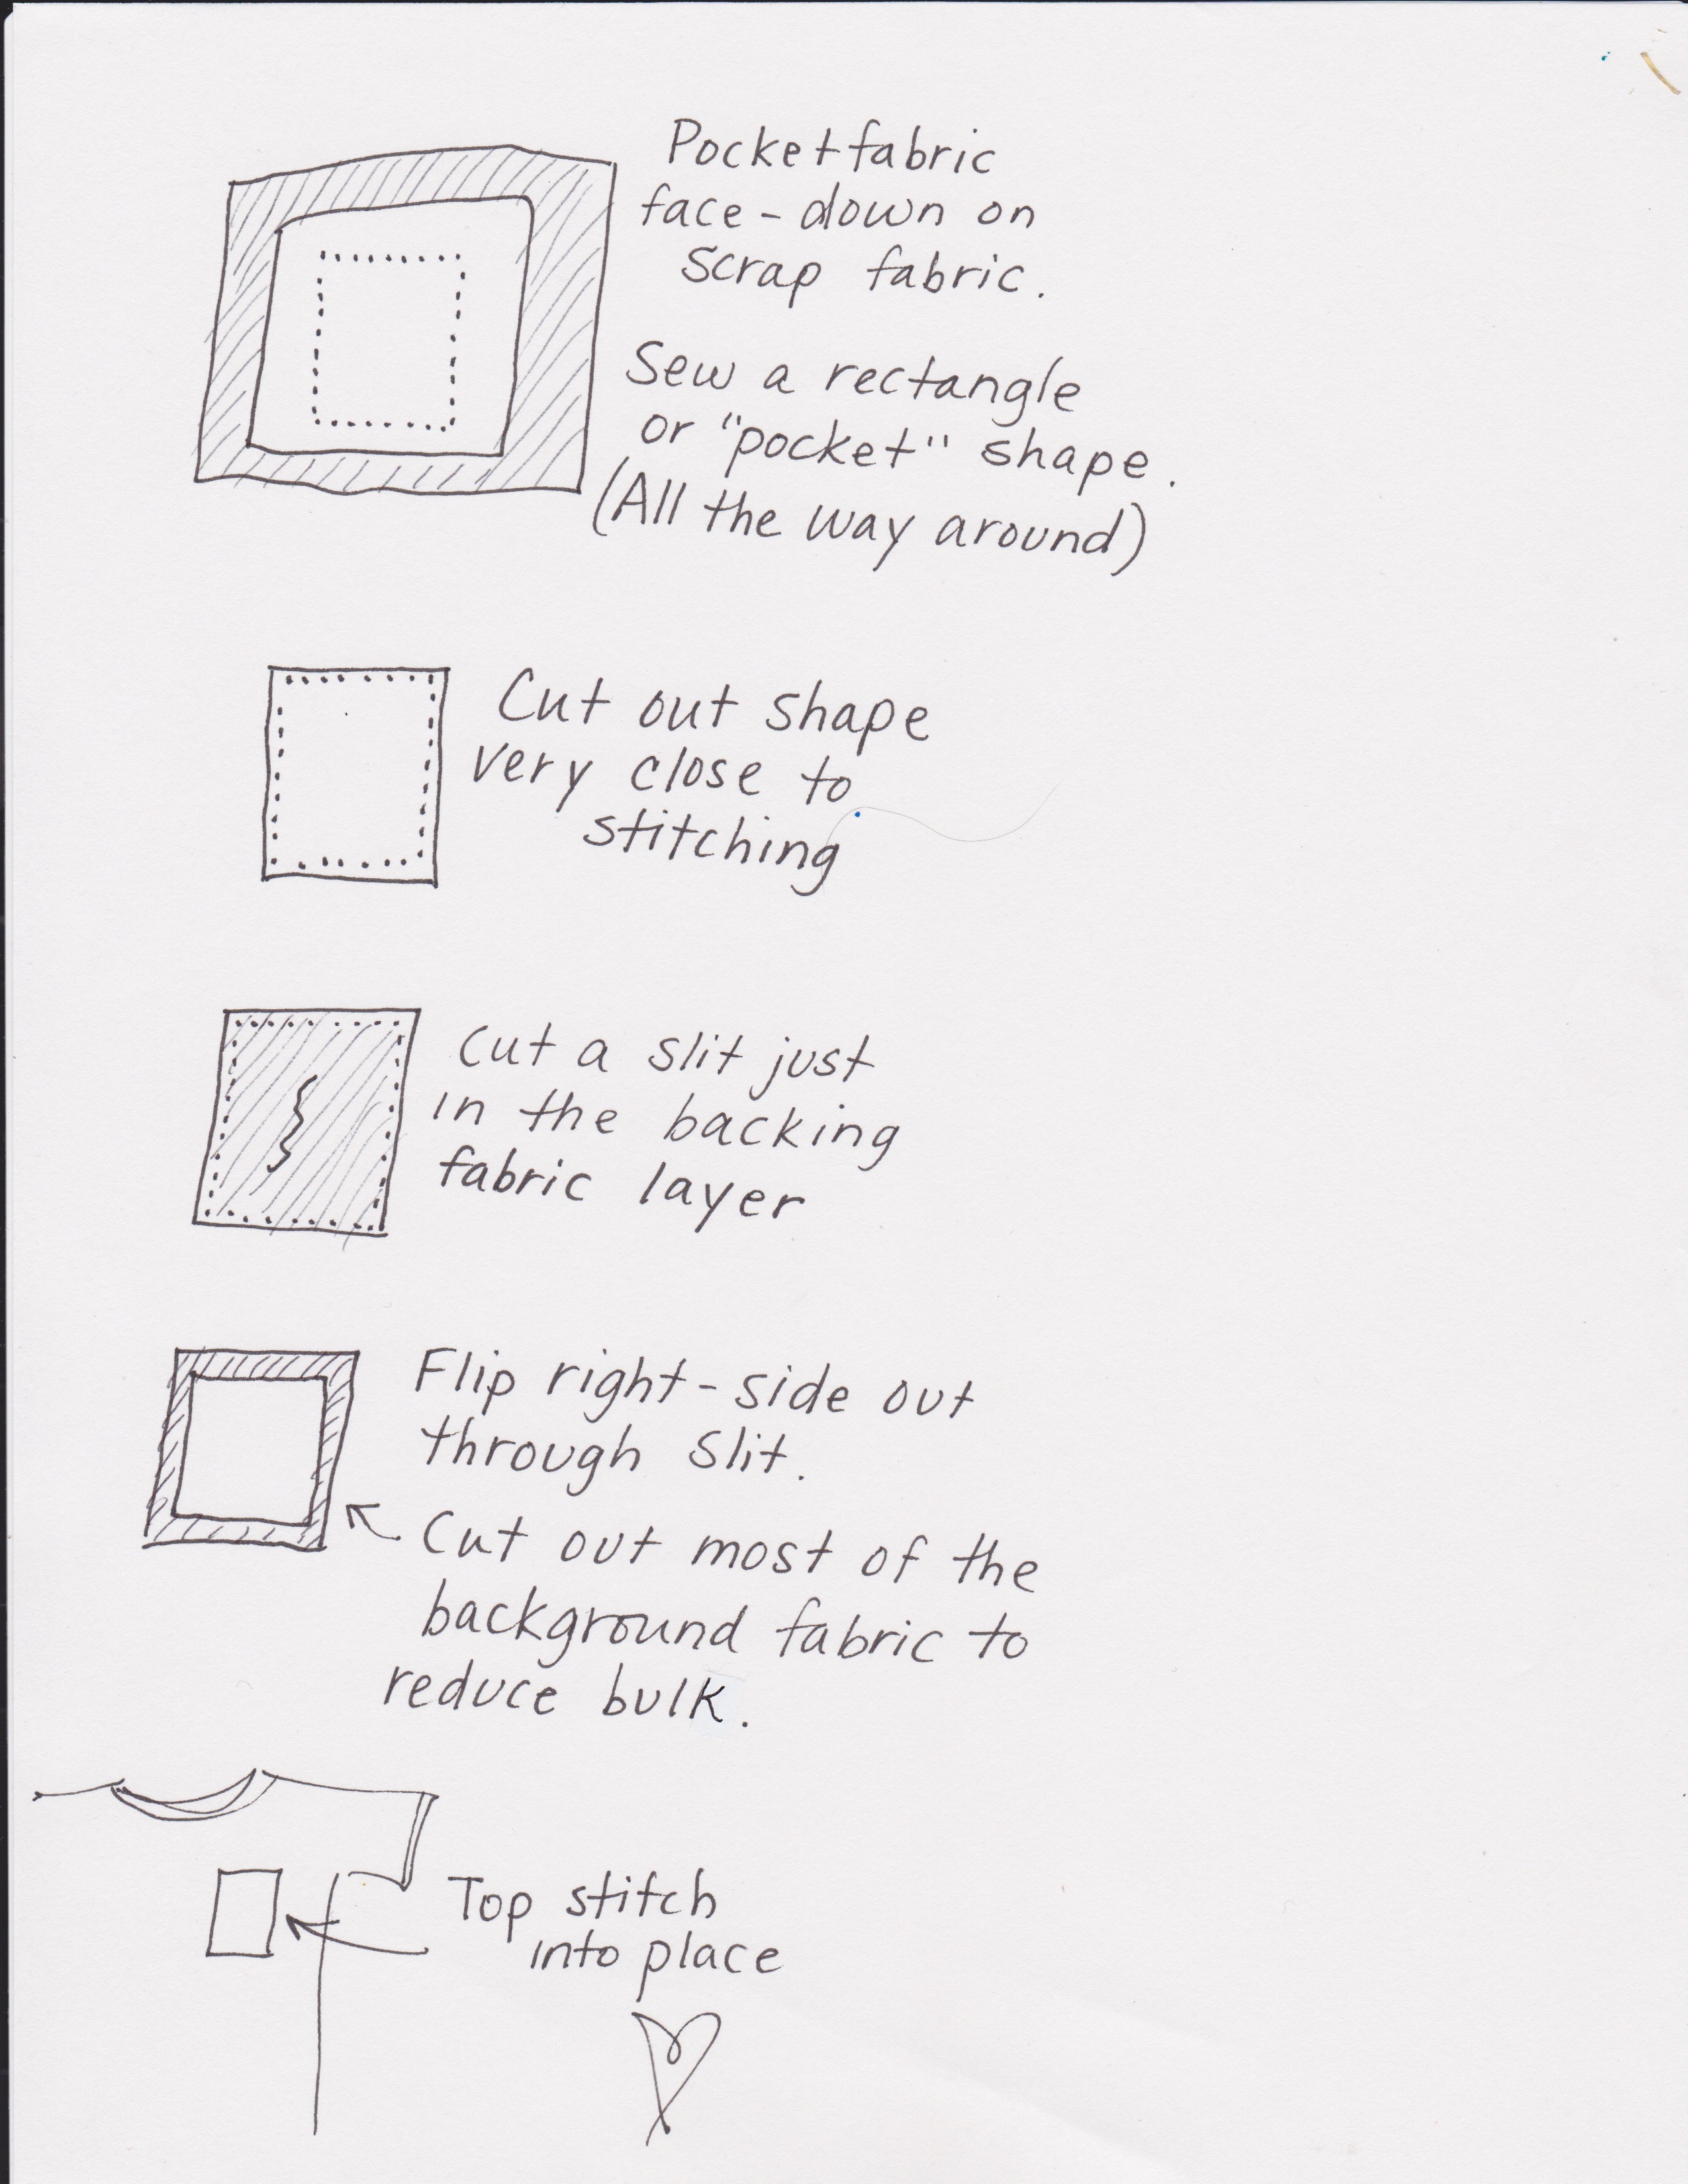 Pocket fabric
face-down on
scrap fabric.
Sew a rectangle
or "pocket" shape.
(All the way around)
Cut out shape
very close to
stitching
Cut a slit just
in the backing
fabric layer
Flip right-side out
through slit.
Cut out most of the
background fabric to
reduce bulk.
Top stitch
into place